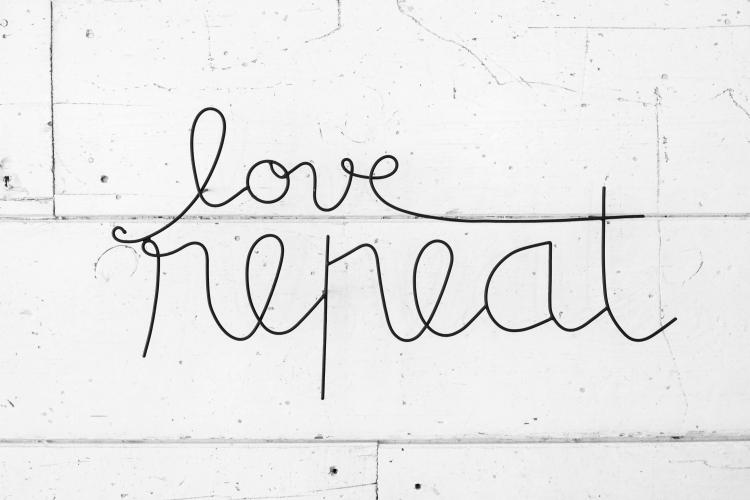 love
repeat